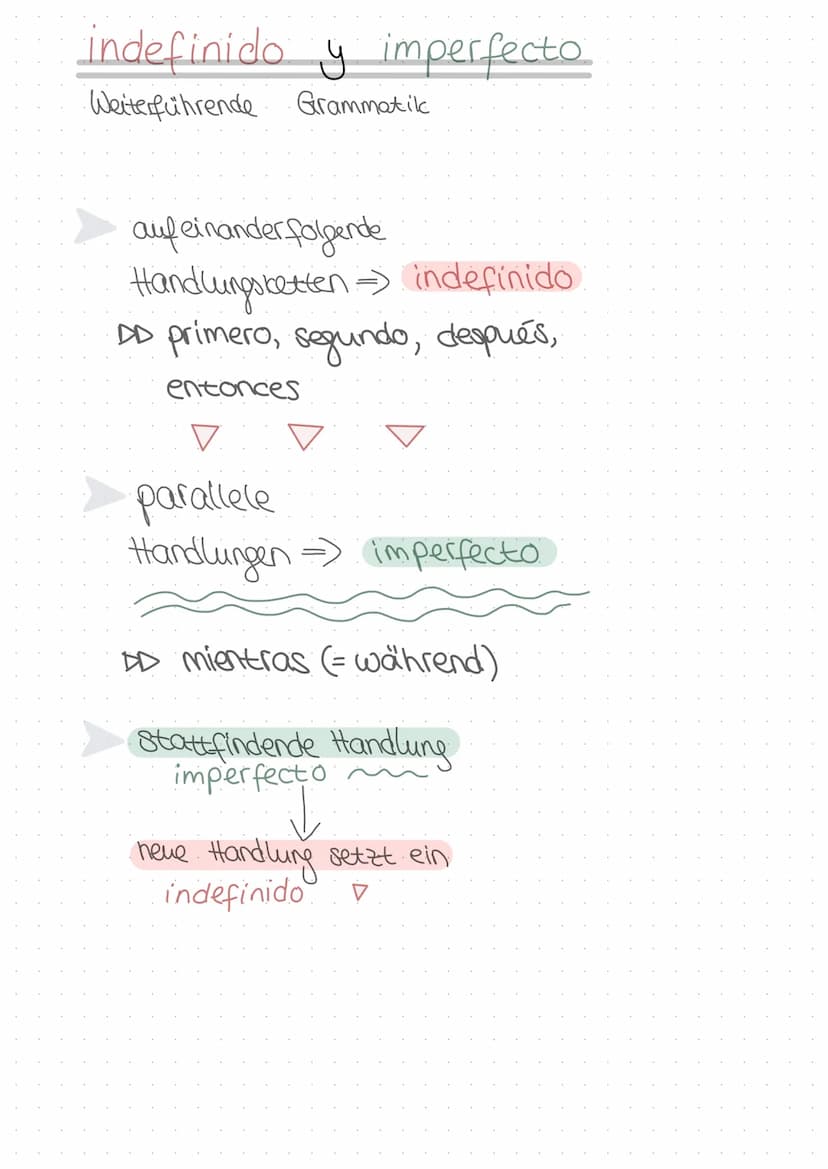 indefinido y imperfecto
Weiterführende Grammatik
aufeinanderfolgende
Handlungsketten => indefinido
▷▷ primero, segundo, después,
entonces
parallele
Handlungen => imperfecto
▷▷ mientras (= während)
stattfindende Handlung
imperfecto
neue Handlung setzt ein
indefinido